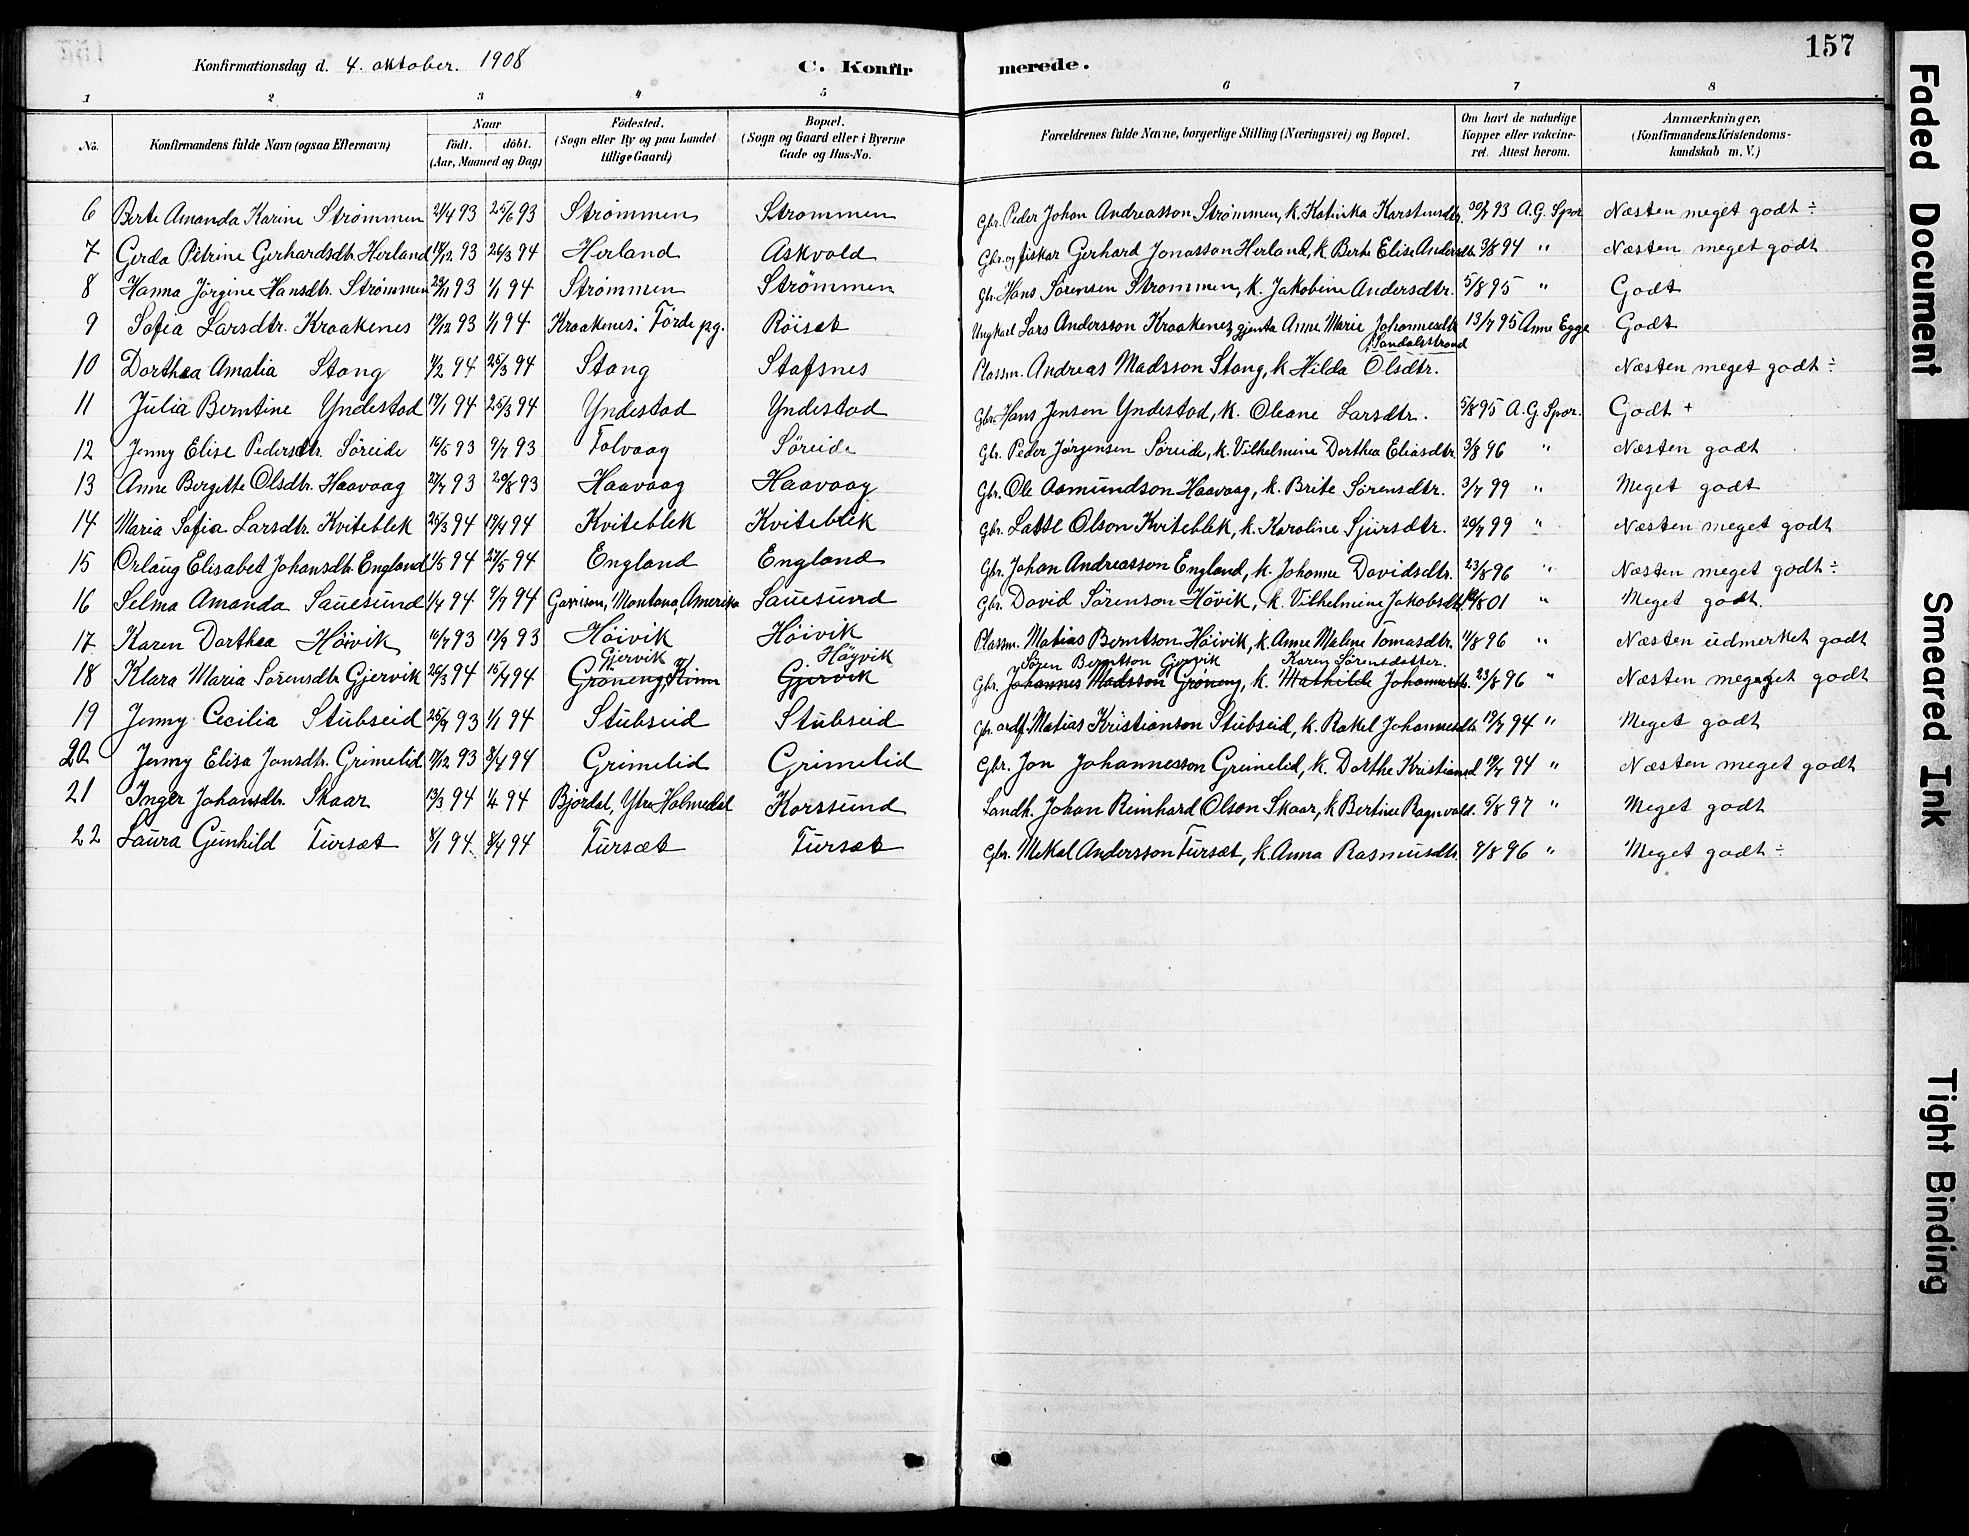 157
Konfirmationsdag d. 4. oktober. 1908 C. Konfirmerede.
1 2 3 4 5 6 7 8
No. Konfirmandens fulde Navn (ogsaa Efternavn) Naar födt. döbt. (Aar, Maaned og Dag) Födested. (Sogn eller By og paa Landet tillige Gaard) Bopæl. (Sogn og Gaard eller i Byerne Gade og Hus-No. Forældrenes fulde Navne, borgerlige Stilling (Næringsvei) og Bopæl. Om havt de naturlige Kopper eller vakcineret. Attest herom. Anmærkninger, (Konfirmandens Kristendomskundskab m. V.)
6 Berte Amanda Karine Strømmen 21/4 93 25/6 93 Strømmen Strømmen Gbr. Peder Johan Andreasson Strømmen, k. Katinka Karstensdtr. 93 A.G. Spor. Næsten meget godt ÷
7 Gerda Petrine Gerhardsdtr. Herland 93 26/3 94 Herland Askvold Gbr. og fisker Gerhard Jonasson Herland, k. Berte Elise Andersdtr. 3/8 94 " Næsten meget godt
8 Hanna Jörgine Hansdtr. Strømmen 93 1/1 94 Strømmen Strömmen Gbr. Hans Sørensen Strømmen, k. Jakobine Andersdtr. 5/8 95 " Godt
9 Sofia Larsdtr. Kraakenes 93 1/1 94 Kraakenes i Förde pg. Röiset Ungkarl Lars Andersson Kraakenes, gjenta Anne Marie Johannesdtr. Sandalsstrand 13/7 95 Anne Egge Godt
10 Dorthea Amalia Stang 1/2 94 25/3 94 Stang Stafsnes Plassm. Andreas Madsson Stang, k Hilda Olsdtr. Næsten meget godt ÷
11 Julia Berntine Yndestad 17/1 94 25/3 94 Yndestad Yndestad Gbr. Hans Jensen Yndestad, k. Oleane Larsdtr. 5/8 95 A.G Spor. Godt +
12 Jenny Elise Pedersdtr. Söreide 16/5 93 9/7 93 Folvaag Söreide Gbr. Peder Jörgensen Söreide, k. Vilhelmine Dorthea Eliasdtr. 3/8 96 " Næsten godt
13 Anne Bergitte Olsdtr. Haavaag 27/7 93 20/8 93 Haavaag Haavaag Gbr. Ole Aamundson Haavaag, k. Brite Sørensdtr. 3/7 99 " Meget godt
14 Maria Sofia Larsdtr. Kviteblek 26/3 94 94 Kviteblek Kviteblek Gbr. Lasse Olson Kviteblek, k. Karoline Sjursdtr. 20/7 99 " Næsten meget godt
15 Orlaug Elisabet Johansdtr. England 1/5 94 27/5 94 England England Gbr. Johan Andreasson England, k. Johanne Davidsdtr. 23/8 96 " Næsten meget godt ÷
16 Selma Amanda Sauesund 1/4 94 9/7 94 Garrison, Montana, Amerika Sauesund Gbr. David Sörenson Hövik, k. Vilhelmine Jakobsdtr. 01 " Meget godt.
17 Karen Dorthea Höivik 16/7 93 17/9 93 Höivik Höivik Plassm. Matias Berntson Höivik, k. Anne Malene Tomasdtr. 96 " Næsten udmerket godt
Gjervik Høyvik Sören Berntson Gjervik Karen Sörensdatter.
18 Klara Maria Sørensdtr. Gjervik 26/3 94 15/4 94 Gröneng, Kinn Gjervik Gbr. Johannes Madsson Gröneng, k. Mathilde Johannesdtr. 23/8 96 " Næsten meget godt
19 Jenny Cecilia Stubseid 93 1/1 94 Stubseid Stubseid Matias Kristianson Stubseid, k. Rakel Johannesdtr. 94 " Meget godt
20 Jenny Elisa Jonsdtr. Grimelid 93 8/4 94 Grimelid Grimelid Gbr. Jon Johannesson Grimelid, k. Dorthe Kristiansd 94 " Næsten meget godt
21 Inger Johansdtr. Skaar 13/3 94 94 Björdal, Ytre Holmedal Korssund Landh. Johan Reinhard Olson Skaar, k Bertine Ragnvald. 5/8 97 " Meget godt
22 Laura Gunhild Tursæt 8/1 94 8/4 94 Tursæt Tursæt Gbr. Mekal Andersson Tursæt, k. Anna Rasmusdtr. 9/8 96 " Meget godt ÷
Faded Document
Smeared Ink
Tight Binding